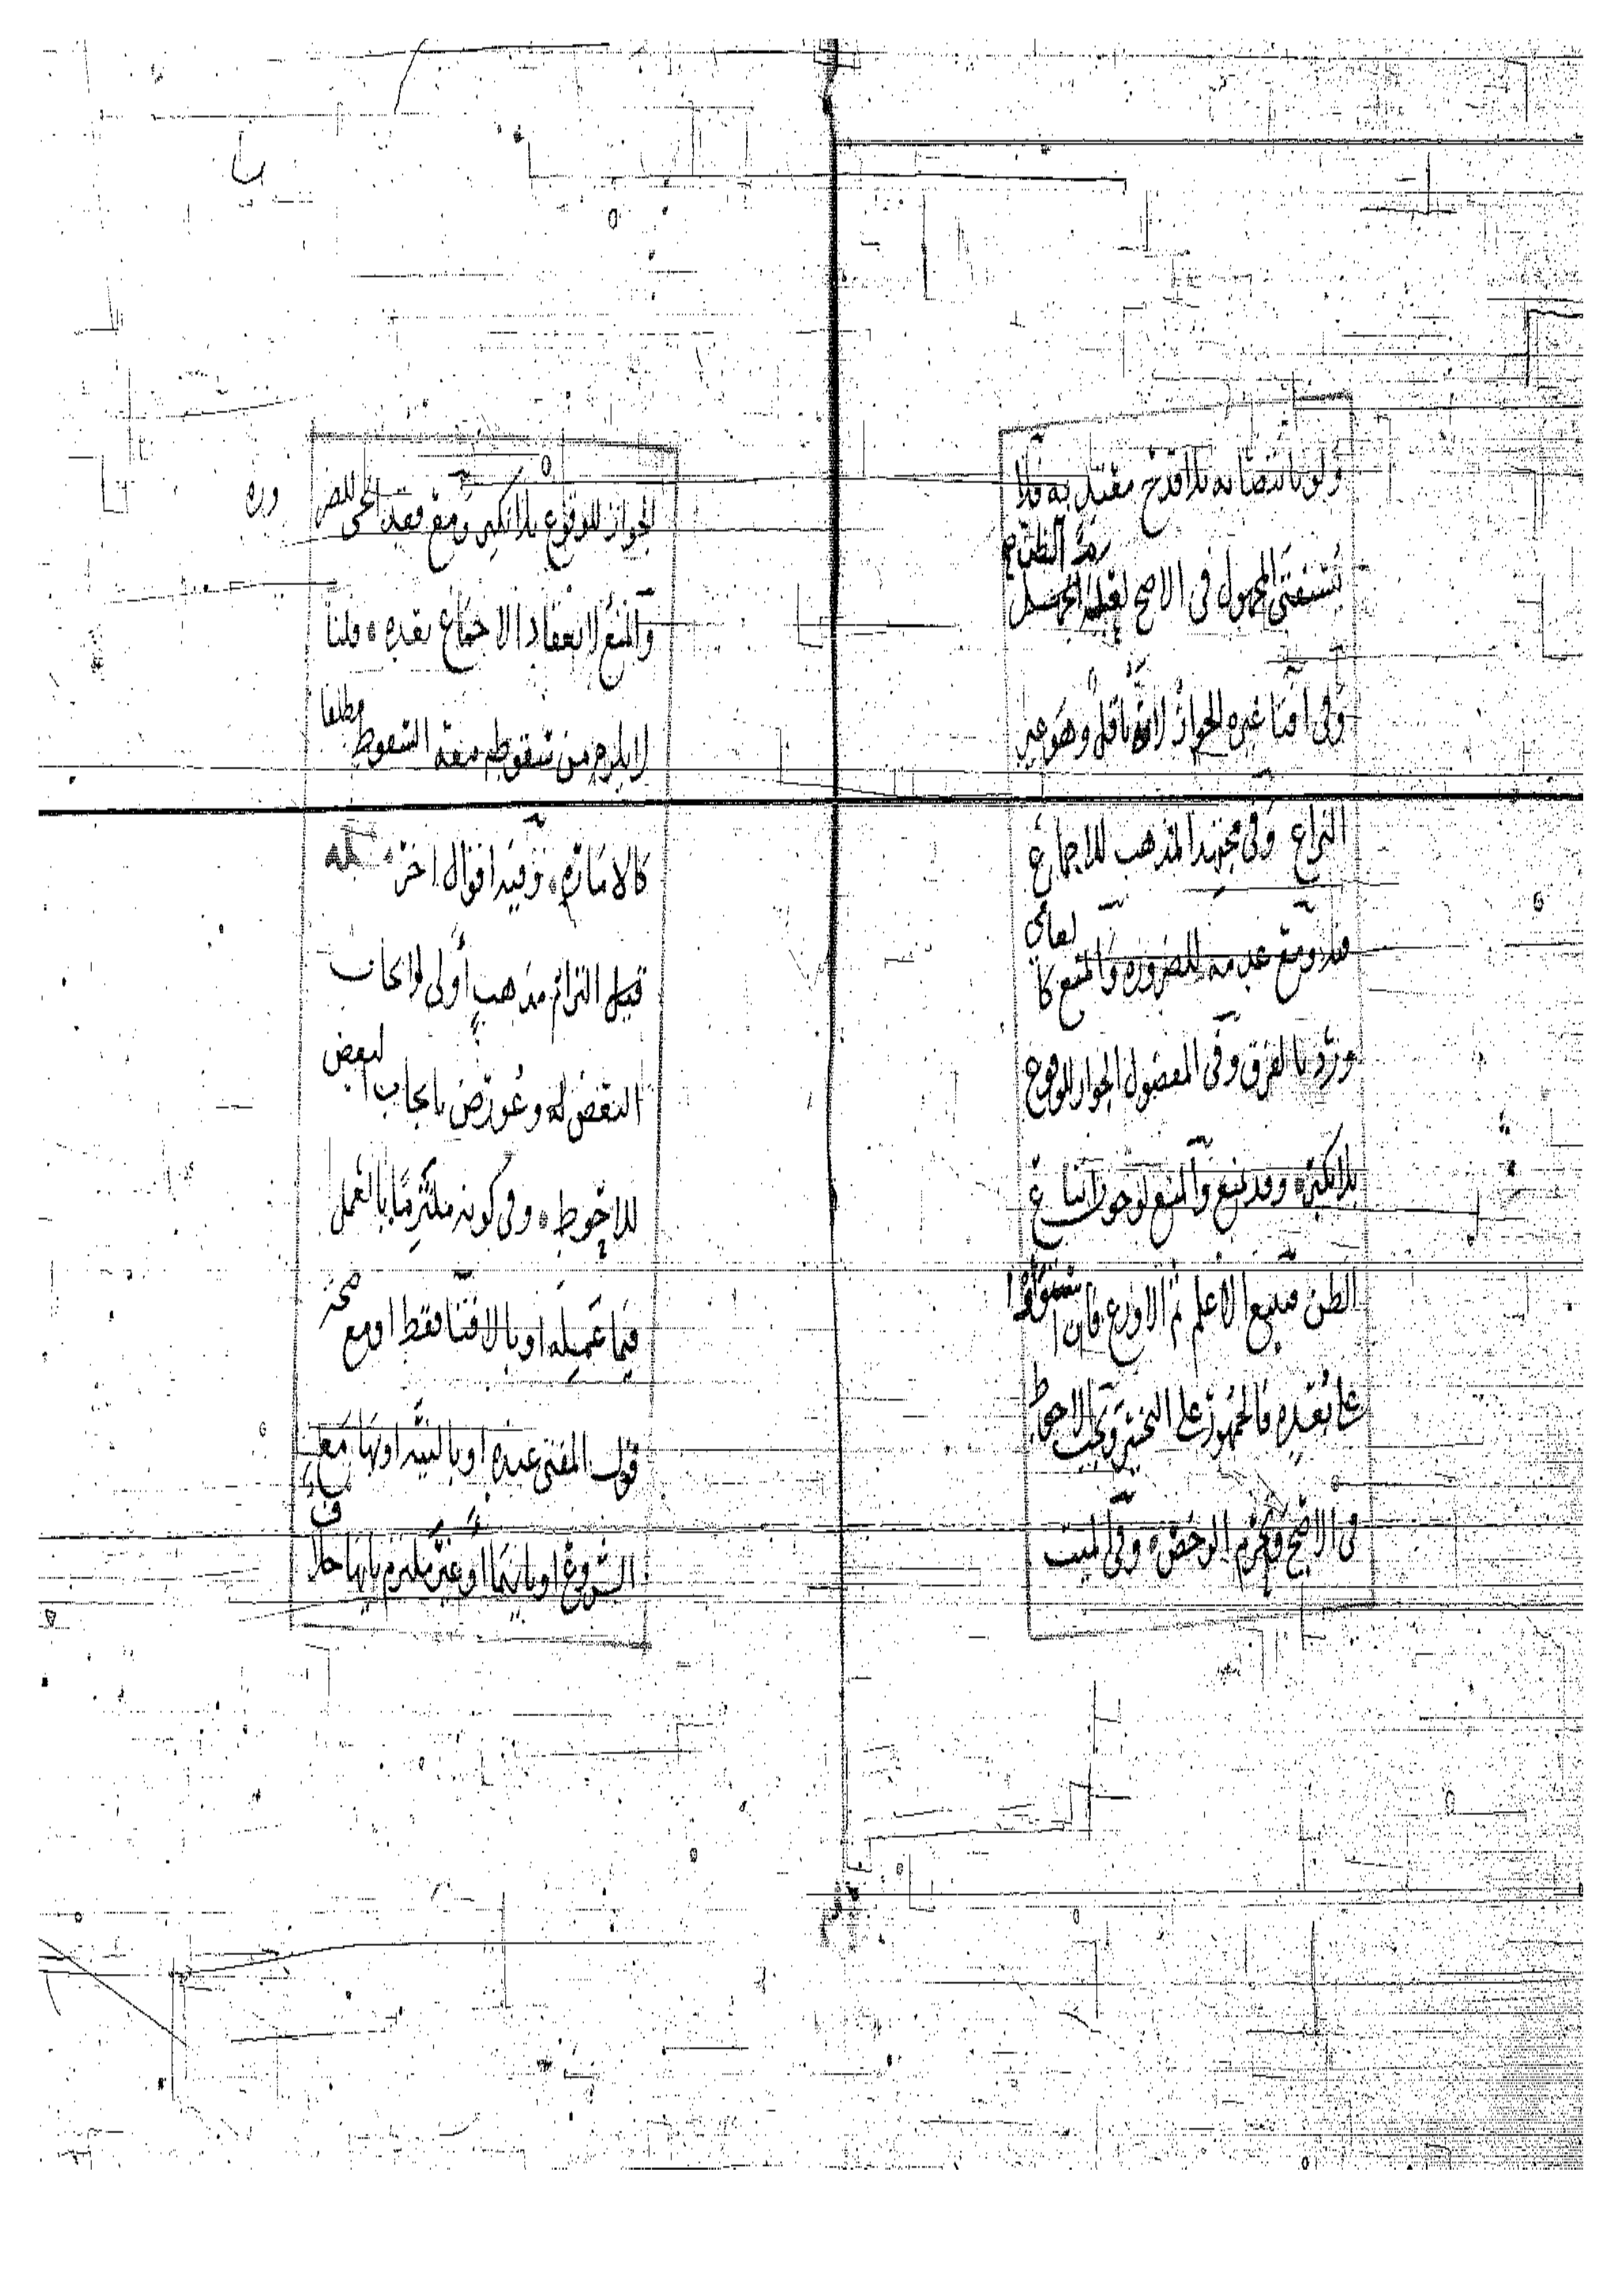 ولو بانتصابه بلا قدح معتد به فلا
يستفتى المجهول فى الاصح لغلبة الجهل
وفى افتا غيره الجواز لانه ناقل وهو عير
النزاع وفى مجتهد المذهب للاجماع
ومع عدمه للضروره والمنع كالعامي
ورد بالفرق وفى المفضول الجواز للوقوع
بلا نكير وقد منع والمنع لوجوب اتباع
الظن فيتبع الاعلم ثم الاورع فان استووا
على بعده فالجمهور على التخيير ويجب الاحوط
فى الاصح ويحرم الرخص وفى الميت
الجواز للوقوع بلا نكير ومع فقد الحى للضروره
والمنع لانعقاد الاجماع بعده قلنا
لا يلزم من سقوطه معه السقوط مطلقا
كالاماره وفيه اقوال اخر
قيل التزام مذهب أولى لايجاب
البعض له وعورض بايجاب البعض
للاحوط وفى كونه ملتزما بالعمل
فيما عمله او بالافتا فقط او مع
قول المفتى عنده او بالنيه او بها مع
الشروع او بايهما او غير ملتزم بايها خلاف